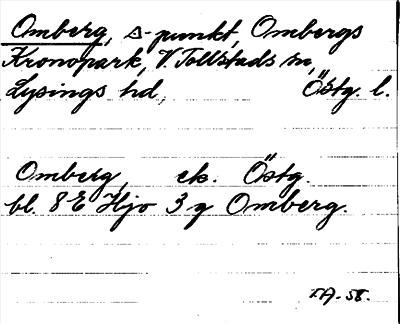 Omberg, △-punkt, Ombergs
Kronopark, V. Tollstads sn,
Lysings hd, Östg. l.
Omberg, ek. Östg.
bl. 8 E Hjo 3 g Omberg.
I.A.-58.